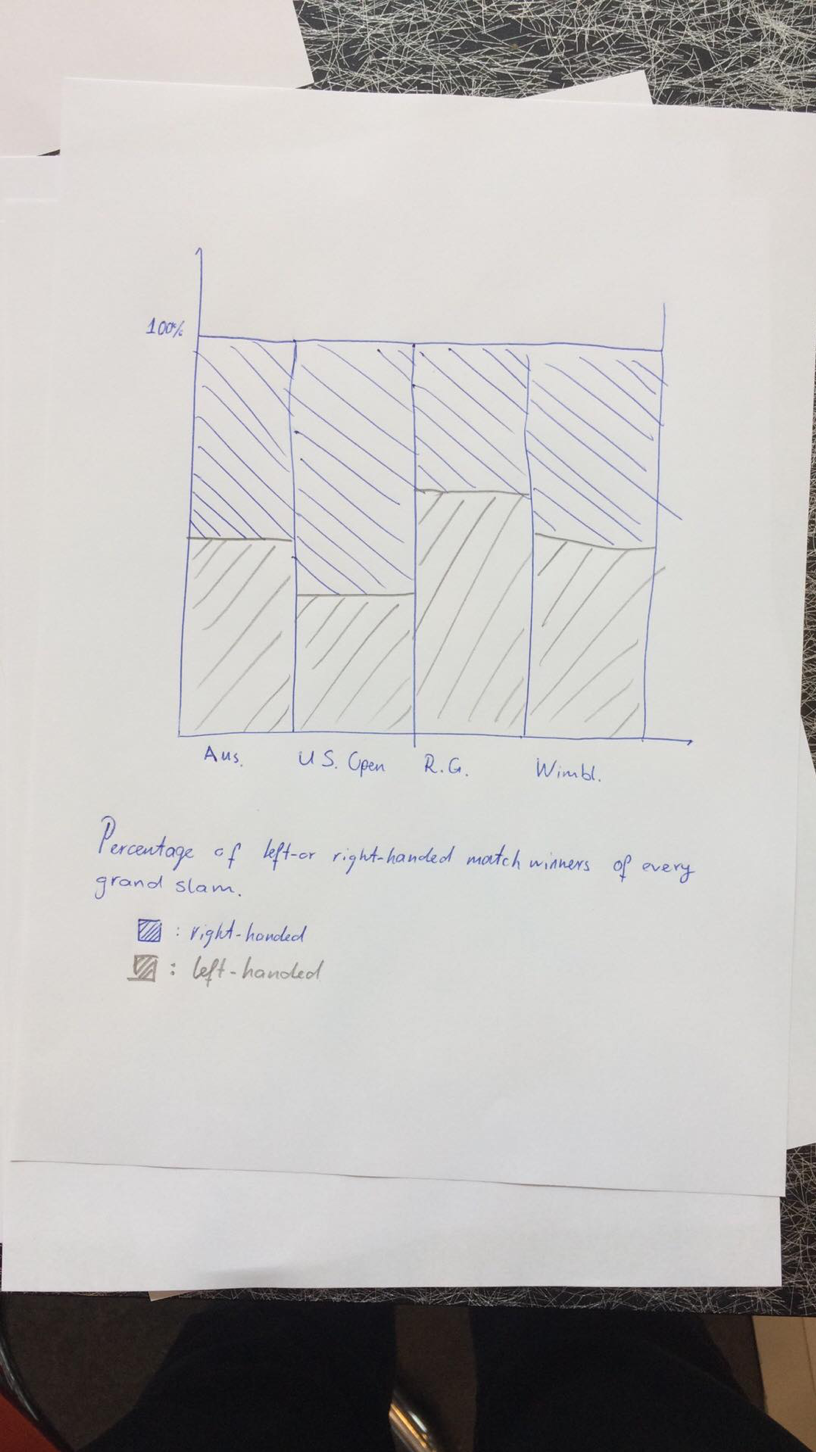 100%
Aus. U.S. Open R.G. Wimbl.
Percentage of left-or right-handed match winners of every
grand slam.
: right-handed
: left-handed